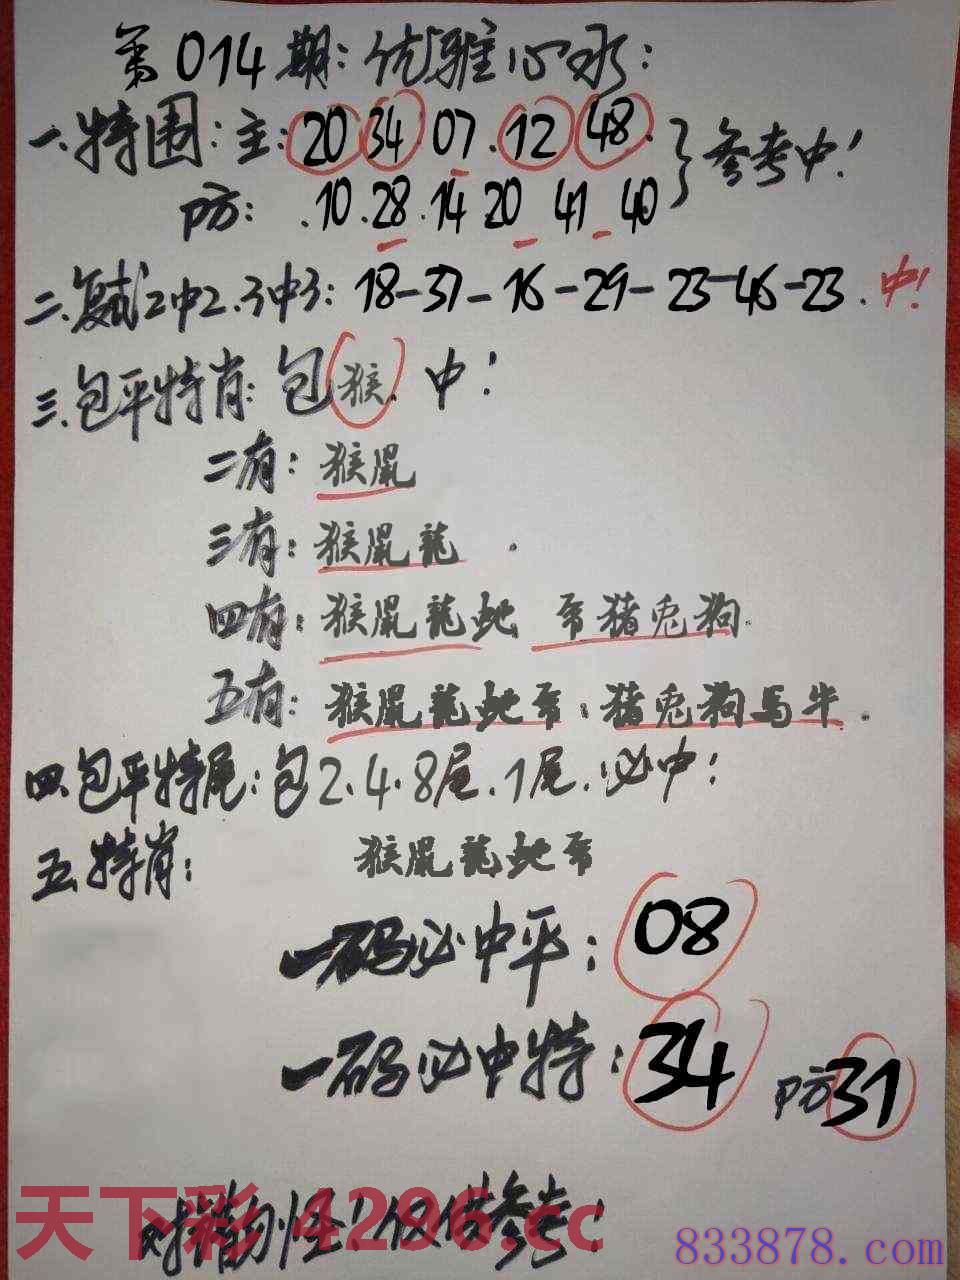 第014期:优雅心水:
一.特围:主:20 34 07.12 48.}参考中!
防:.10.28.14 20 41 40
二.复试2中2.3中3:18-37-16-29-23-46-23.中!
三.包平特肖:包猴.中!
二有:猴鼠
三有:猴鼠龍.
四有:猴鼠龍蛇 猪兔狗.
五有:猴鼠龍蛇 猪兔狗马牛.
四.包平特尾:包2.4.8尾.1尾.必中!
五.特肖:猴鼠龍蛇
一码必中平:08
一码必中特:34 防31
对错勿怪!仅供参考!
天下彩 4296.cc
833878.com